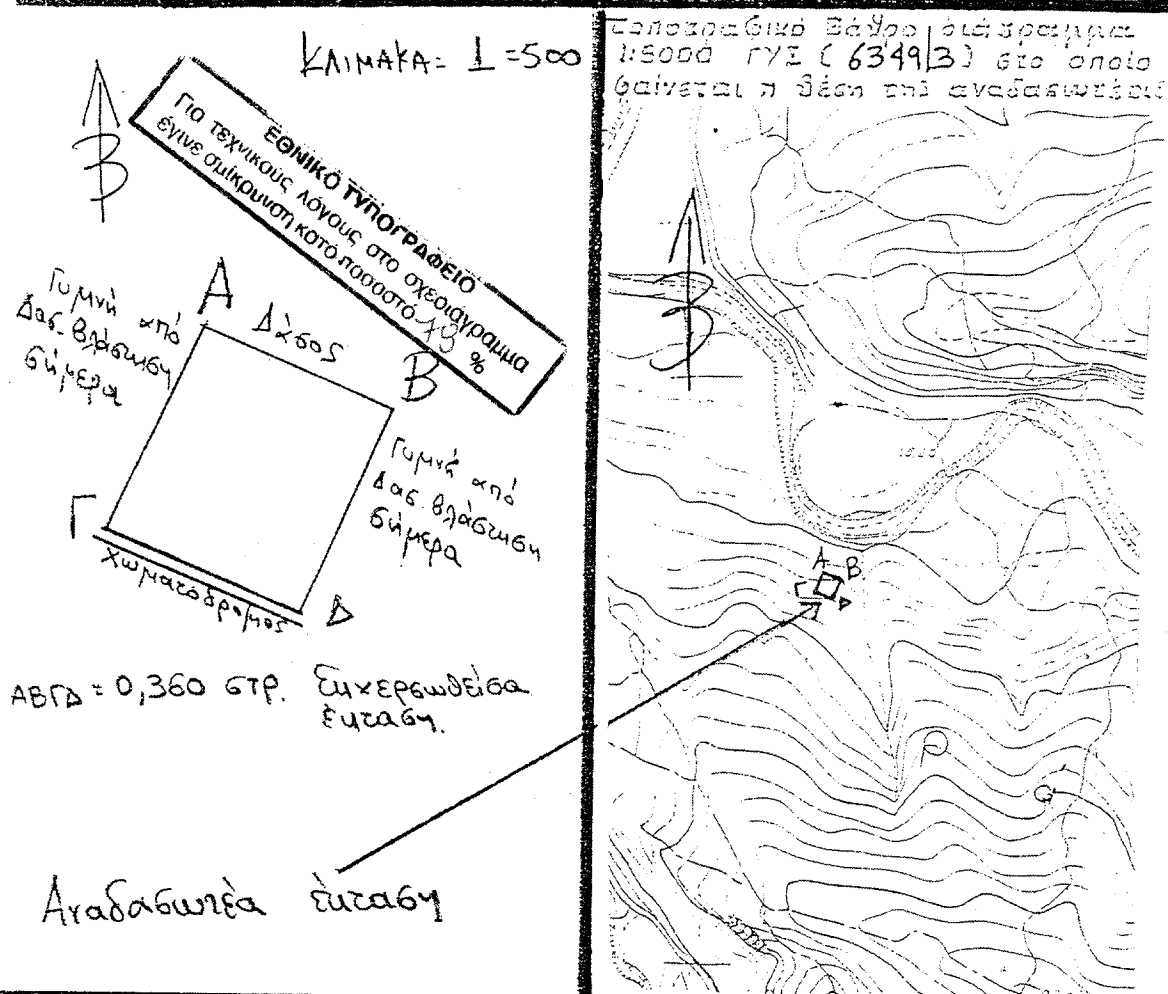 ΚΛΙΜΑΚΑ = 1 = 500
Β
ΕΘΝΙΚΟ ΤΥΠΟΓΡΑΦΕΙΟ
Για τεχνικούς λόγους στο σχεδιάγραμμα
έγινε σμίκρυνση κατά ποσοστό %
Α
Δάσος
Β
Γυμνή από
Δασ. βλάστηση
σήμερα
Γυμνή από
Δασ. βλάστηση
σήμερα
Γ
Χωματόδρομος
Δ
ΑΒΓΔ = 0,360 στρ. Εκχερσωθείσα
έκταση.
Αναδασωτέα έκταση
Τοπογραφικό Βάθρο διάγραμμα
1:5000 ΓΥΣ (6349/3) στο οποίο
φαίνεται η θέση της
Β
Α Β
Γ Δ